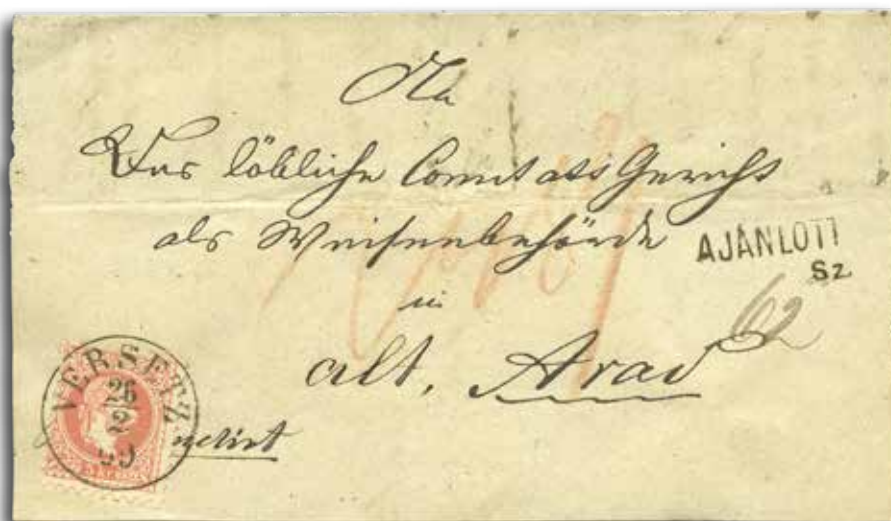 An
Das löbliche Comitats Gericht
als Waisenbehörde
AJÁNLOTT
Sz
62
in
alt, Arad
VERSETZ
26
2